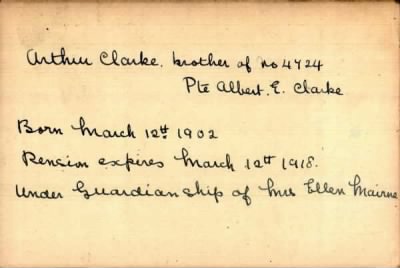 Arthur Clarke. brother of No 4724
Pte Albert. E. Clarke
Born March 12th 1902
Pension expires March 12th 1918.
Under Guardianship of Mrs Ellen Mairne